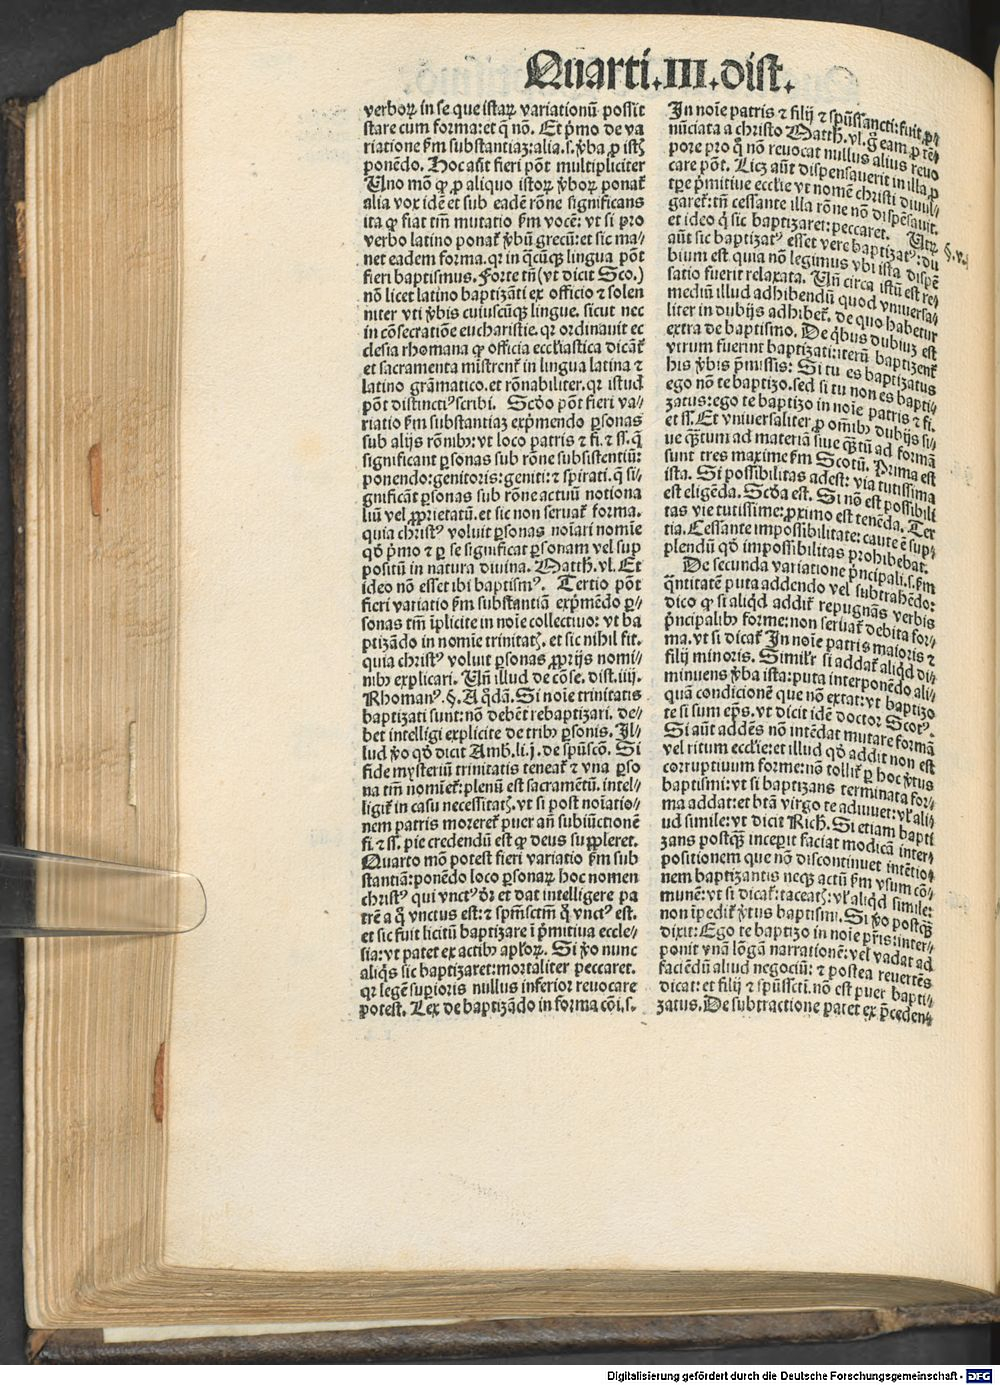 Quarti.III.dist.
verboꝝ in se que istaꝝ variationū possit
stare cum forma: et q̄ nō. Et p̄mo de va
riatione ẜm substantiaȝ: alia.s. v̓ba ꝑ istꝭ
ponēdo. Hoc aūt fieri pōt multipliciter
Uno mō ꝙ ꝓ aliquo istoꝝ v̓boꝝ ponat̄
alia vox idē et sub eadē rōne significans
ita ꝙ fiat tm̄ mutatio ẜm vocē: vt si pro
verbo latino ponat̄ v̓bū grecū: et sic ma⸗
net eadem forma. qꝛ in q̄cūqꝫ lingua pōt
fieri baptismus. Forte tn̄ (vt dicit Sco.)
nō licet latino baptizāti ex officio ⁊ solen
niter vti v̓bis cuiuscūqꝫ lingue. sicut nec
in cōsecratiōe eucharistie. qꝛ ordinauit ec
clesia rhomana ꝙ officia eccl̓iastica dicāt̄
et sacramenta mīstrent̄ in lingua latina ⁊
latino grāmatico. et rōnabiliter. qꝛ istud
pōt distinctiꝰ scribi. Scd̓o pōt fieri va⸗
riatio ẜm substantiaȝ exp̄mendo ꝑsonas
sub alijs rōnibꝫ: vt loco patris ⁊ fi. ⁊ ss. q̄
significant ꝑsonas sub rōne subsistentiū:
ponendo: genitoris: geniti: ⁊ spirati. q̄ si⸗
gnificāt ꝑsonas sub rōne actuū notiona
liū vel ꝓprietatū. et sic non seruat̄ forma.
quia christꝰ voluit ꝑsonas noīari nomīe
qd̓ p̄mo ⁊ ꝑ se significat ꝑsonam vel sup
positū in natura diuina. Matth̄. vl. Et
ideo nō esset ibi baptismꝰ. Tertio pōt
fieri variatio ẜm substantiā exp̄mēdo ꝑ⸗
sonas tm̄ īplicite in noīe collectiuo: vt ba
ptizādo in nomīe trinitatꝭ. et sic nihil fit.
quia christꝰ voluit ꝑsonas ꝓprijs nomi⸗
nibꝫ explicari. Un̄ illud de cōse. dist. iiij.
Rhomanꝰ. §. A q̄dā. Si noīe trinitatis
baptizati sunt: nō debēt rebaptizari. de⸗
bet intelligi explicite de tribꝫ ꝑsonis. Il⸗
lud v̓o qd̓ dicit Amb. li. j. de sp̄uscō. Si
fide mysteriū trinitatis teneat̄ ⁊ vna ꝑso
na tm̄ nomīet̄: plenū est sacramētū. intel⸗
ligit̄ in casu necessitatꝭ. vt si post noīatio⸗
nem patris moreret̄ puer an̄ subiūctionē
fi. ⁊ ss. pie credendū est ꝙ deus suppleret.
Quarto mō potest fieri variatio ẜm sub
stantiā: ponēdo loco ꝑsonaꝝ hoc nomen
christꝰ qui vnctꝰ dr̄ et dat intelligere pa
trē a q̊ vnctus est: ⁊ sp̄msctm̄ q̊ vnctꝰ est.
et sic fuit licitū baptizare ī p̄mitiua eccle⸗
sia: vt patet ex actibꝫ apl̓oꝝ. Si v̓o nunc
aliq̄s sic baptizaret: mortaliter peccaret.
qꝛ legē superioris nullus inferior reuocare
potest. Lex de baptizādo in forma cōi. s.
In noīe patris ⁊ filij ⁊ sp̄ussancti: fuit ꝓ⸗
nūciata a christo Matth̄. vl. g̊ eam ꝓ tē⸗
pore pro q̊ nō reuocat nullus alius reuo
care pōt. Licȝ aūt dispensauerit in illa, ꝓ
tp̄e p̄mitiue eccl̓ie vt nomē christi diuul⸗
garet̄: tn̄ cessante illa rōne nō dispēsauit.
et ideo q̄ sic baptizaret: peccaret. Utꝝ §.v.
aūt sic baptizatꝰ esset vere baptizatꝰ: du
bium est quia nō legimus vbi ista dispē
satio fuerit relaxata. Un̄ circa istū est re⸗
mediū illud adhibendū quod vniuersa⸗
liter in dubijs adhibet̄. de quo habetur
extra de baptismo. De q̄bus dubiuȝ est
vtrum fuerint baptizati: iterū baptizent̄
his v̓bis p̄missis: Si tu es baptizatus
ego nō te baptizo. sed si tu non es bapti⸗
zatus: ego te baptizo in noīe patris ⁊ fi.
et ss. Et vniuersaliter ꝓ om̄ibꝫ dubijs si⸗
ue q̄ȝtum ad materiā siue q̄ȝtū ad formā
sunt tres maxime ẜm Scotū. Prima est
ista. Si possibilitas adest: via tutissima
est eligēda. Scd̓a est. Si nō est possibili
tas vie tutissime: ꝓximo est tenēda. Ter
tia. Cessante impossibilitate: caute ē sup⸗
plendū qd̓ impossibilitas prohibebat.
De secunda variatione p̄ncipali. s. ẜm
q̄ntitatē puta addendo vel subtrahēdo:
dico ꝙ si aliqd̓ addit̄ repugnās verbis
p̄ncipalibꝫ forme: non seruat̄ debita for⸗
ma. vt si dicat̄ In noīe patris maioris ⁊
filij minoris. Simil̓r si addat̄ aliqd̓ di⸗
minuens v̓ba ista: puta interponēdo ali⸗
quā condicionē que nō extat: vt baptizo
te si sum ep̄s. vt dicit idē doctor Scotꝰ.
Si aūt addēs nō intēdat mutare formā
vel ritum eccl̓ie: et illud qd̓ addit non est
corruptiuum forme: nō tollit̄ ꝑ hoc v̓tus
baptismi: vt si baptizans terminata for⸗
ma addat: et bt̄ā virgo te adiuuet: vl̓ ali⸗
ud simile: vt dicit Rich̄. Si etiam bapti
zans postq̄ȝ inceperit faciat modicā inter⸗
positionem que nō discontinuet intētio⸗
nem baptizantis necqꝫ actū ẜm vsum cō⸗
munē: vt si dicat̄: taceatꝭ: vl̓ aliqd̓ simile:
non īpedit̄ v̓tus baptismi. Si v̓o postq̄ȝ
dixit: Ego te baptizo in noīe pr̄is: inter⸗
ponit vnā lōgā narrationē: vel vadat ad
faciēdū aliud negociū: ⁊ postea reuertēs
dicat: et filij ⁊ sp̄ussct̄i. nō est puer bapti⸗
zatus. De subtractione patet ex p̄ceden⸗
Digitalisierung gefördert durch die Deutsche Forschungsgemeinschaft - DFG